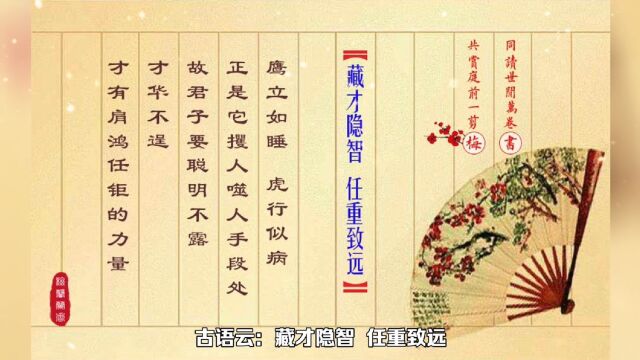 同請世閒萬卷書
共賞庭前一剪梅
【藏才隐智 任重致远】
鹰立如睡 虎行似病
正是它攫人噬人手段处
故君子要聪明不露
才华不逞
才有肩鸿任钜的力量
古语云：藏才隐智 任重致远